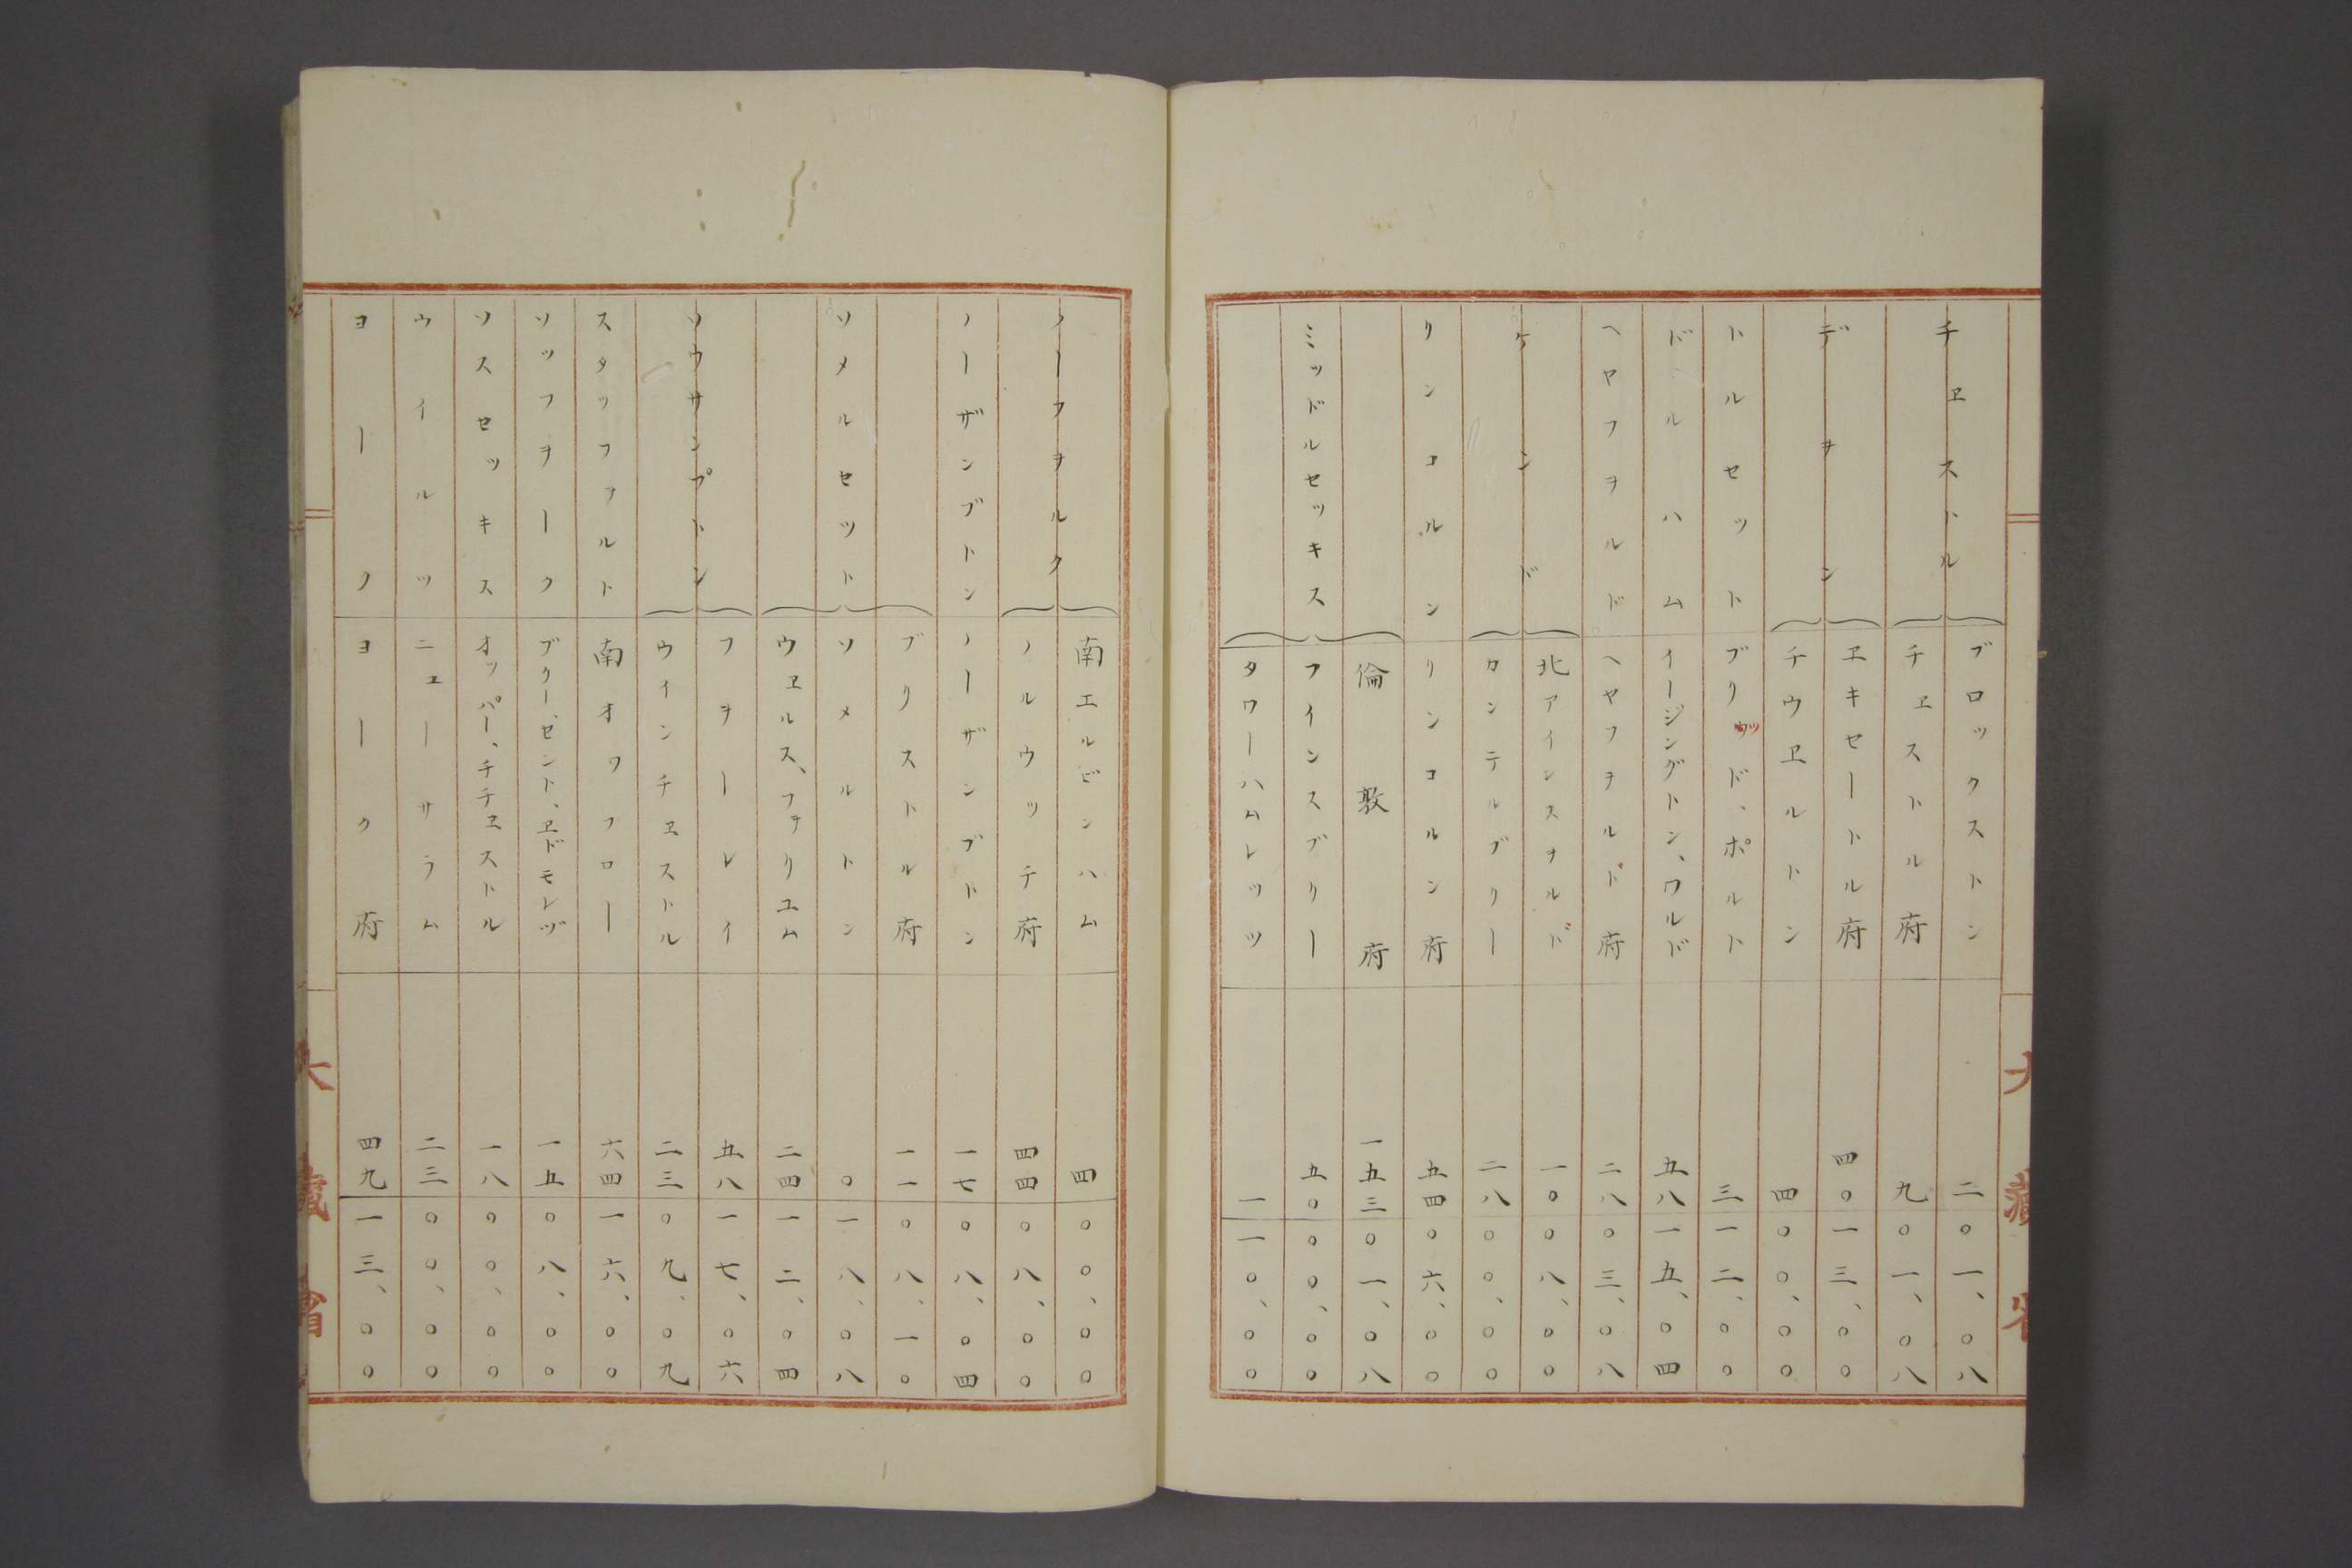 チヱストル ブロックストン 二〇一、〇八
チヱストル府 九〇一、〇八
デヲン ヱキセートル府 四〇一三、〇〇
チウヱルトン 四〇〇、〇〇
トルセット ブリウッド、ポルト 三一二、〇〇
ドルハム イージングトン、ワルド 五八一五、〇四
ヘヤフヲルド ヘヤフヲルド府 二八〇三、〇八
ケンド 北アインスナルド 一〇〇八、〇〇
カンテルブリー 二八〇〇、〇〇
リンコルン リンコルン府 五四〇六、〇〇
ミッドルセッキス 倫敦府 一五三〇一、〇八
フインスブリー 五〇〇〇、〇〇
タワーハムレッツ 一一〇、〇〇
大藏省
ノーフヲルク 南エルビンハム 四〇〇、〇〇
ノルウッチ府 四四〇八、〇〇
ノーザンブトン ノーザンブトン 一七〇八、〇四
ソメルセット ブリストル府 一一〇八、一〇
ソメルトン 〇一八、〇八
ウヱルス、フヲリエム 二四一二、〇四
ソウサンプトン フヲーレイ 五八一七、〇六
ウインチヱストル 二三〇九、〇九
スタッフヲルト 南オワフロー 六四一六、〇〇
ソッフヲーク ブクー、セント、ヱドモレヅ 一五〇八、〇〇
ソスセッキス オッパー、チチヱストル 一八〇〇、〇〇
ウイルツ ニューサラム 二三〇〇、〇〇
ヨーク ヨーク府 四九一三、〇〇
大藏省